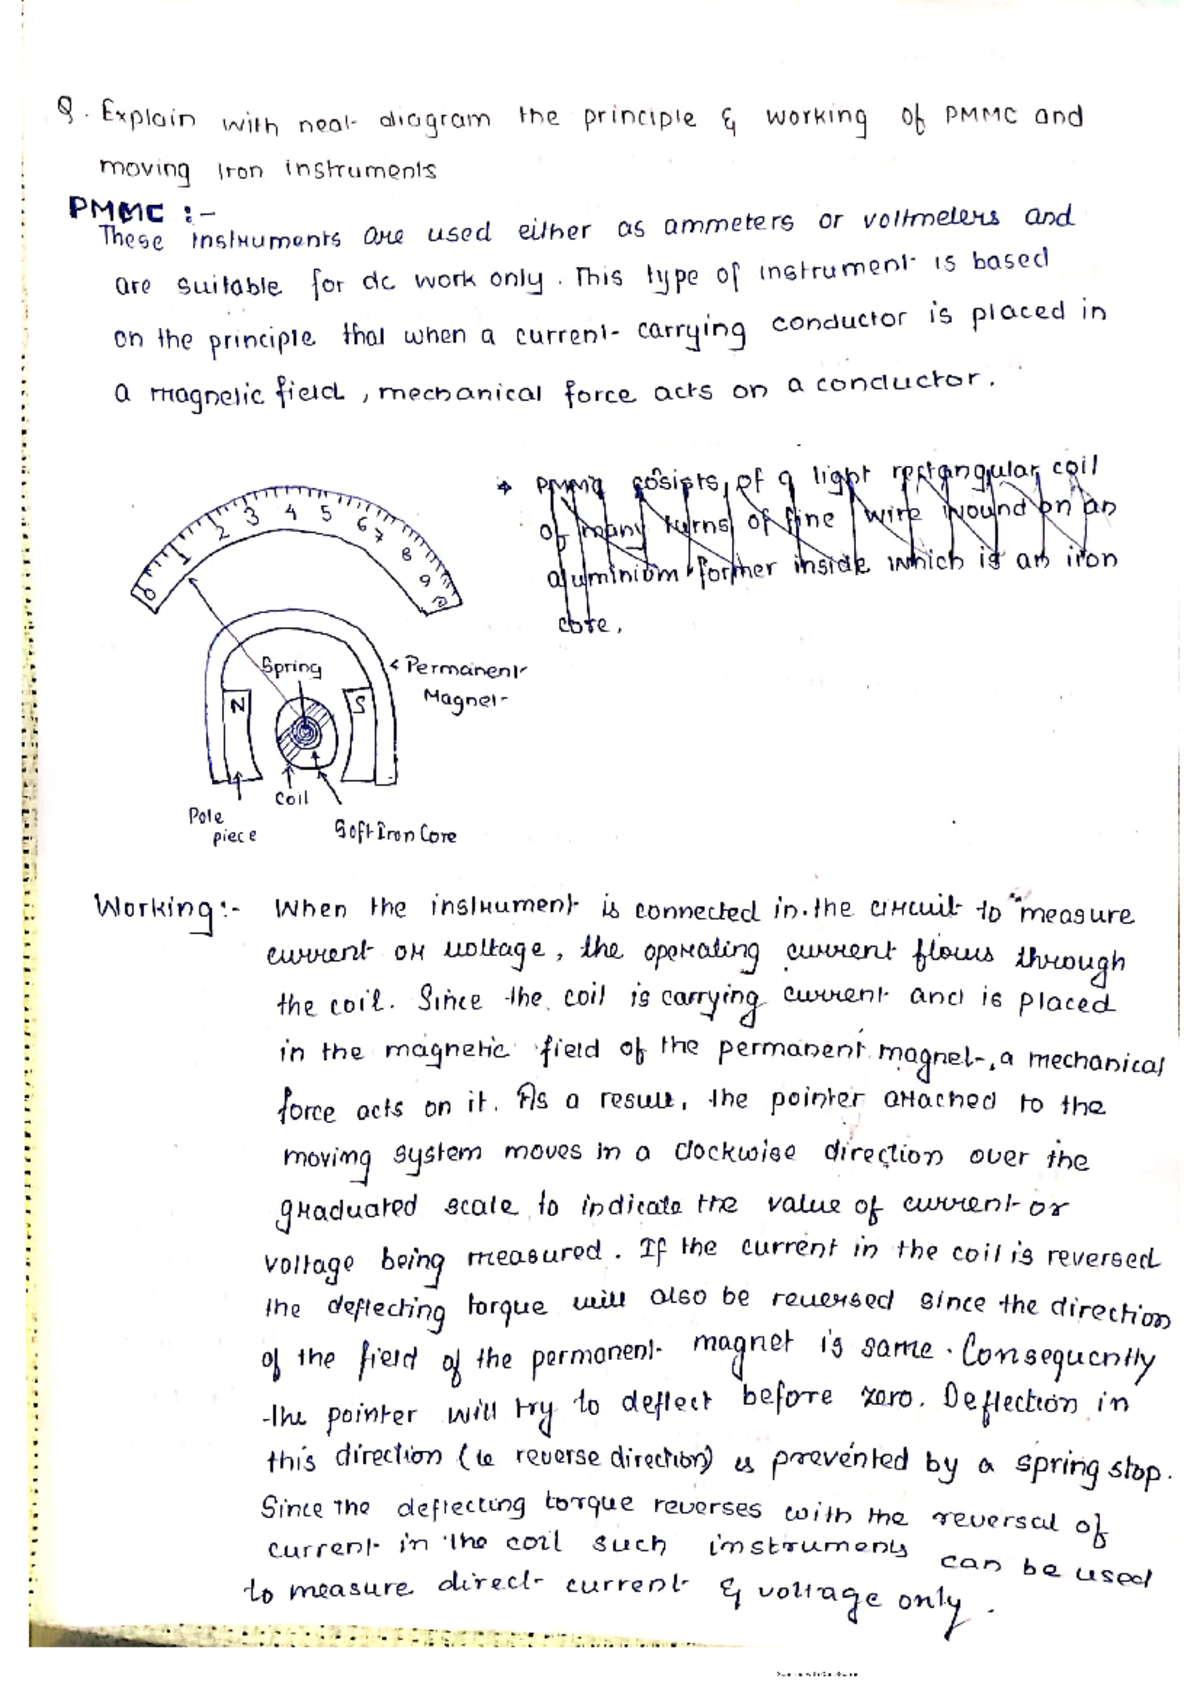 Q. Explain with neat diagram the principle & working of PMMC and
moving Iron instruments
PMMC :-
These instruments are used either as ammeters or voltmeters and
are suitable for dc work only. This type of instrument is based
on the principle that when a current-carrying conductor is placed in
a magnetic field, mechanical force acts on a conductor.
→ PMMC cosists of a light rectangular coil
of many turns of fine wire wound on an
aluminium former inside which is an iron
core.
0 1 2 3 4 5 6 7 8 9 10
Spring
Permanent
Magnet
N
S
Coil
Pole
piece
Soft Iron Core
Working:- When the instrument is connected in the circuit to measure
current or voltage, the operating current flows through
the coil. Since the coil is carrying current and is placed
in the magnetic field of the permanent magnet, a mechanical
force acts on it. As a result, the pointer attached to the
moving system moves in a clockwise direction over the
graduated scale to indicate the value of current or
voltage being measured. If the current in the coil is reversed
the deflecting torque will also be reversed since the direction
of the field of the permanent magnet is same. Consequently
the pointer will try to deflect before zero. Deflection in
this direction (ie reverse direction) is prevented by a spring stop.
Since the deflecting torque reverses with the reversal of
current in the coil such instruments can be used
to measure direct current & voltage only.